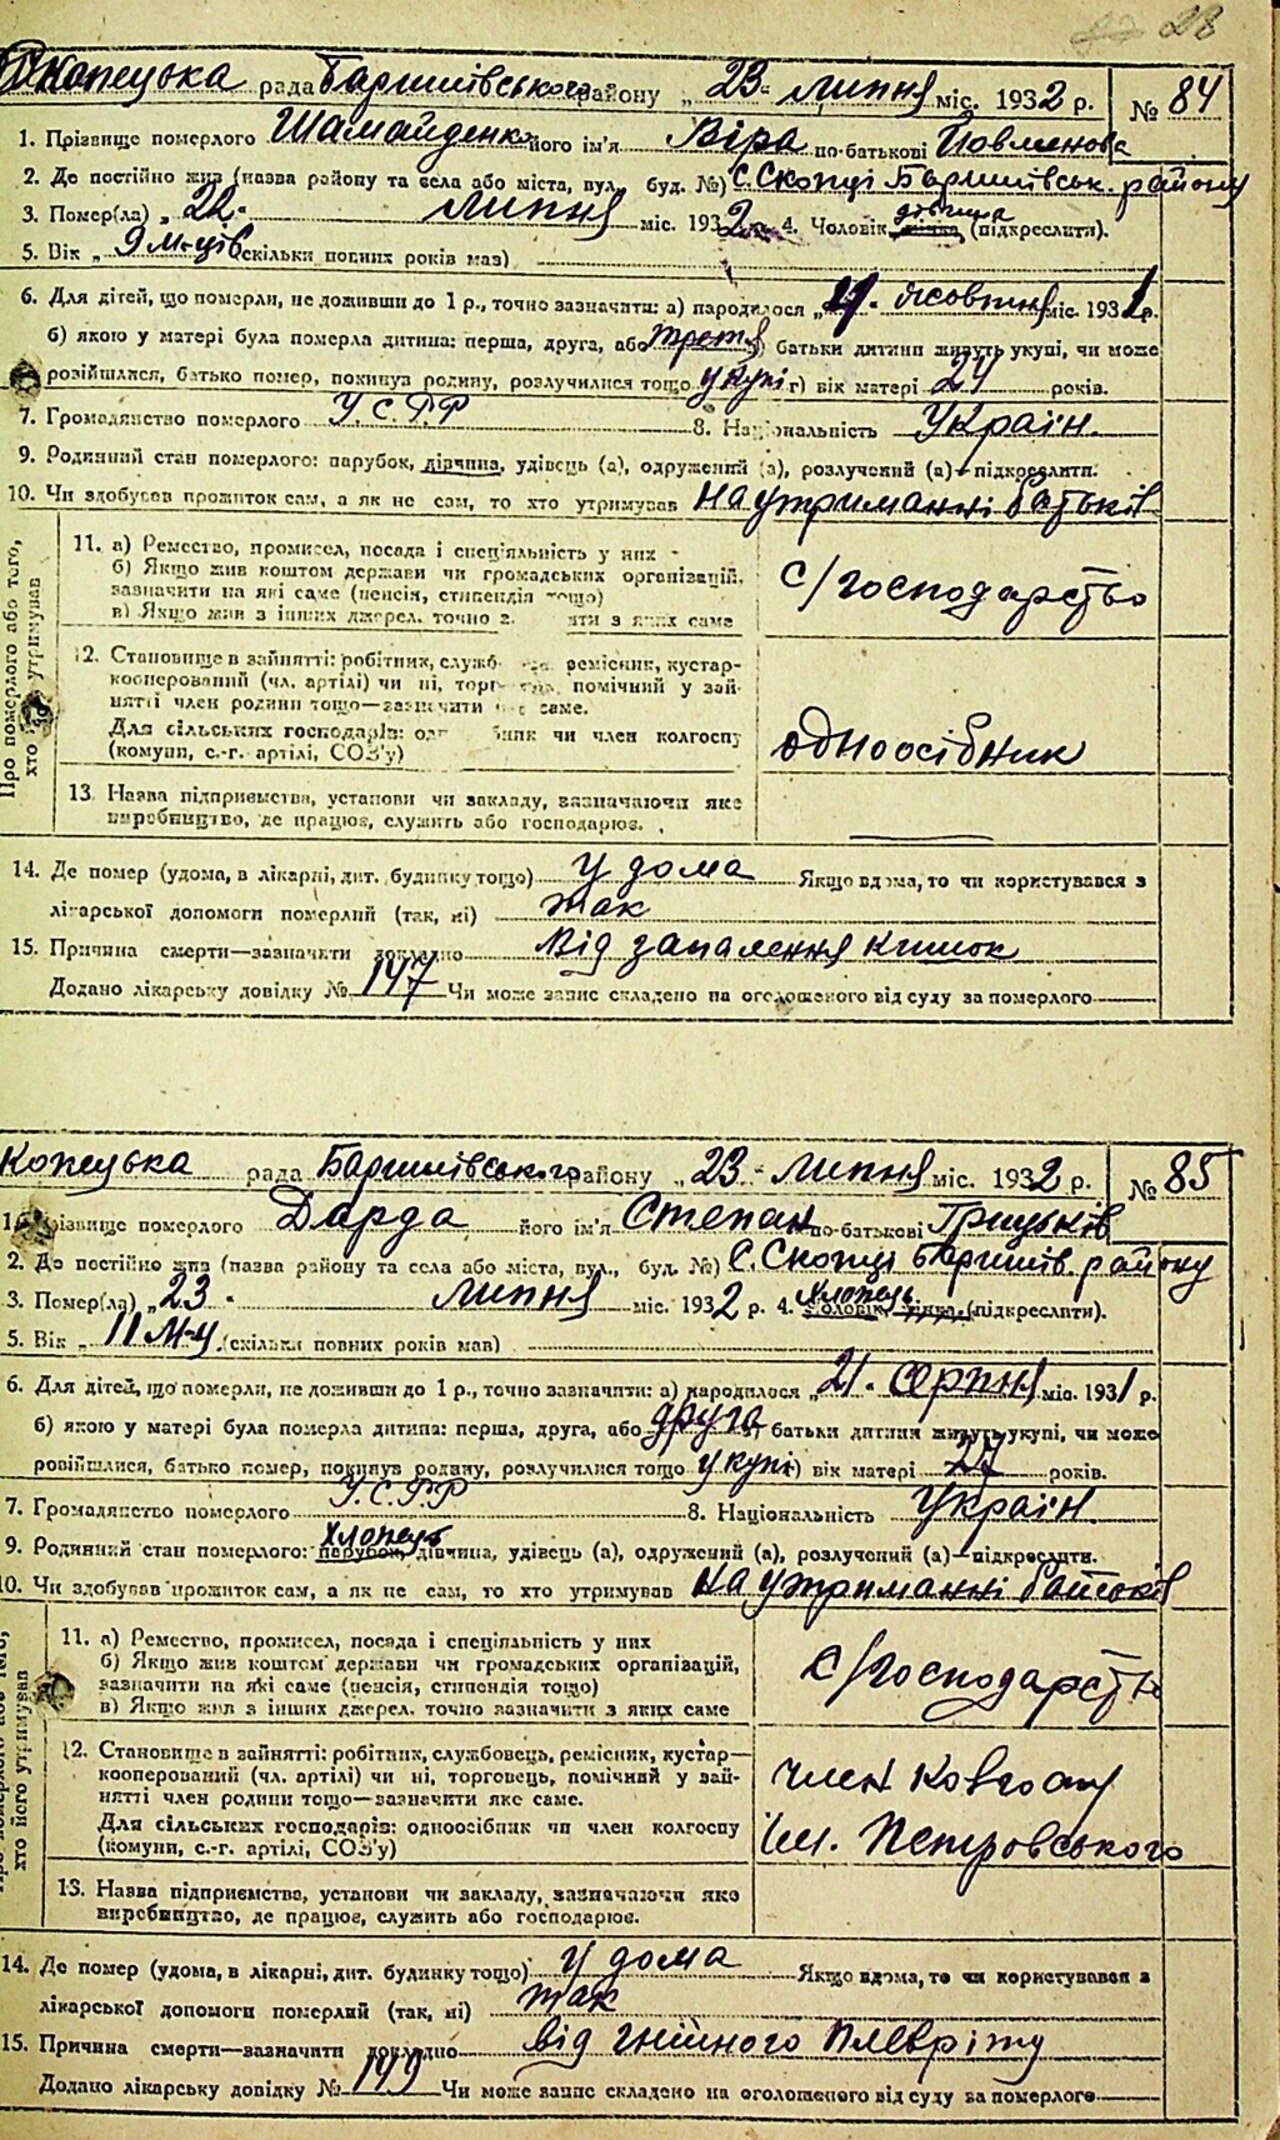 28
Скопецька рада Баришівського району „23" липня міс. 1932 р. № 84
1. Прізвище померлого Шамайденко його ім'я Віра по-батькові Йовменова
2. Де постійно жив (назва району та села або міста, вул., буд. №) С. Скопці Баришівськ. району
3. Помер(ла) „22" липня міс. 1932 р. 4. Чоловік, дівчина (підкреслити).
5. Вік „9 м-ців (скільки повних років мав)
6. Для дітей, що померли, не доживши до 1 р., точно зазначити: а) народилося „ жовтня міс. 1931 р.
б) якою у матері була померла дитина: перша, друга, або третя батьки дитини живуть укупі, чи може
розійшлися, батько помер, покинув родину, розлучилися тощо укупі г) вік матері років.
7. Громадянство померлого У.С.Р.Р 8. Національність Україн.
9. Родинний стан померлого: парубок, дівчина, удівець (а), одружений (а), розлучений (а)—підкреслити.
10. Чи здобував прожиток сам, а як не сам, то хто утримував на утриманні батьків
Про померлого або того, хто його утримував
11. а) Ремество, промисел, посада і спеціяльність у них
б) Якщо жив коштом держави чи громадських організацій, с/господарство
зазначити на які саме (пенсія, стипендія тощо)
в) Якщо жив з інших джерел, точно зазначити з яких саме
12. Становище в зайнятті: робітник, службовець, ремісник, кустар-
кооперований (чл. артілі) чи ні, торговець, помічний у зай-
нятті член родини тощо—зазначити яке саме.
Для сільських господарів: одноосібник чи член колгоспу одноосібник
(комуни, с.-г. артілі, СОЗ'у)
13. Назва підприємства, установи чи закладу, зазначаючи яке
виробництво, де працює, служить або господарює.
14. Де помер (удома, в лікарні, дит. будинку тощо) у дома Якщо вдома, то чи користувався з
лікарської допомоги померлий (так, ні) так
15. Причина смерти—зазначити докладно від запалення кишок
Додано лікарську довідку № 147 Чи може запис складено на оголошеного від суду за померлого
Копецька рада Баришівського району „23" липня міс. 1932 р. № 85
1. Прізвище померлого Дарда його ім'я Степан по-батькові Грицьків
2. Де постійно жив (назва району та села або міста, вул., буд. №) С. Скопці Баришів. району
3. Помер(ла) „23" липня міс. 1932 р. 4. хлопець Чоловік, жінка (підкреслити).
5. Вік „11 м-ц. (скільки повних років мав)
6. Для дітей, що померли, не доживши до 1 р., точно зазначити: а) народилося „21" серпня міс. 1931 р.
б) якою у матері була померла дитина: перша, друга, або друга в) батьки дитини живуть укупі, чи може
розійшлися, батько помер, покинув родину, розлучилися тощо укупі г) вік матері 27 років.
7. Громадянство померлого У.С.Р.Р 8. Національність Україн.
9. Родинний стан померлого: хлопець парубок, дівчина, удівець (а), одружений (а), розлучений (а)—підкреслити.
10. Чи здобував прожиток сам, а як не сам, то хто утримував на утриманні батьків
Про померлого або того, хто його утримував
11. а) Ремество, промисел, посада і спеціяльність у них
б) Якщо жив коштом держави чи громадських організацій, с/господарство
зазначити на які саме (пенсія, стипендія тощо)
в) Якщо жив з інших джерел, точно зазначити з яких саме
12. Становище в зайнятті: робітник, службовець, ремісник, кустар—
кооперований (чл. артілі) чи ні, торговець, помічний у зай- член ковгоспу
нятті член родини тощо—зазначити яке саме.
Для сільських господарів: одноосібник чи член колгоспу ім. Петровського
(комуни, с.-г. артілі, СОЗ'у)
13. Назва підприємства, установи чи закладу, зазначаючи яке
виробництво, де працює, служить або господарює.
14. Де помер (удома, в лікарні, дит. будинку тощо) у дома Якщо вдома, то чи користувався з
лікарської допомоги померлий (так, ні) так
15. Причина смерти—зазначити докладно від гнійного плевріту
Додано лікарську довідку № 199 Чи може запис складено на оголошеного від суду за померлого